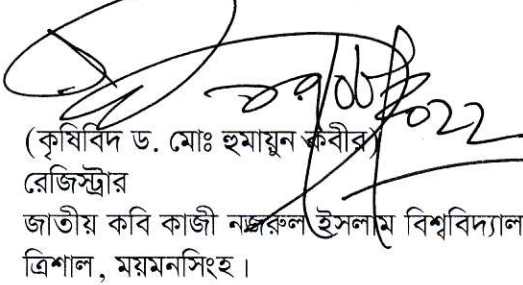 (কৃষিবিদ ড. মোঃ হুমায়ুন কবীর)
রেজিস্ট্রার
জাতীয় কবি কাজী নজরুল ইসলাম বিশ্ববিদ্যাল
ত্রিশাল, ময়মনসিংহ।